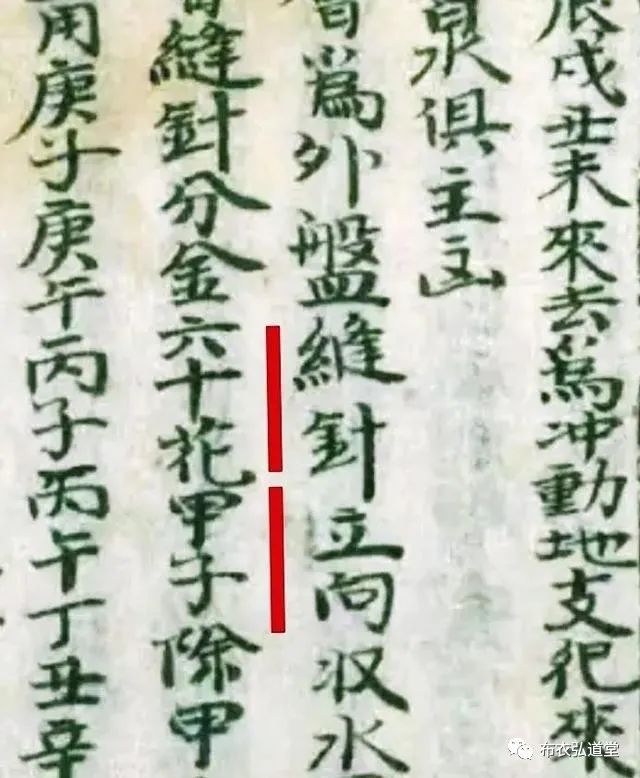 辰戌丑未來去爲冲動地支犯來
泉俱主凶
皆爲外盤縫針立向收水
縫針分金六十花甲子除甲
用庚子庚午丙子丙午丁丑辛
布衣弘道堂